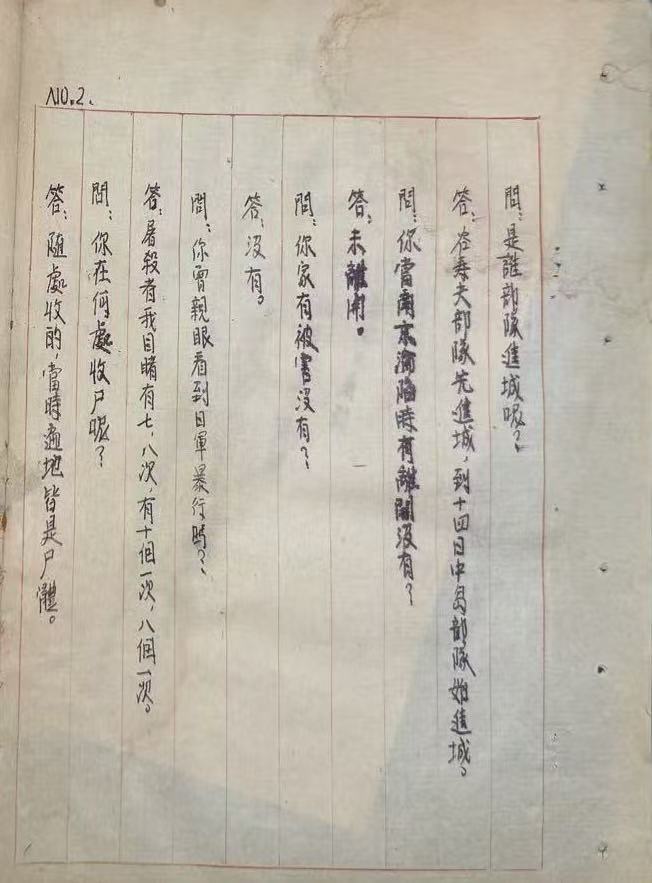 NO.2.
問：是誰部隊進城呢？
答：谷寿夫部隊先進城，到十四日中島部隊始進城。
問：你當南京淪陷時有離開沒有？
答：未離開。
問：你家有被害沒有？
答：沒有。
問：你曾親眼看到日軍暴行嗎？
答：屠殺者我目睹有七，八次，有十個一次，八個一次。
問：你在何處收尸呢？
答：随處收的，當時遍地皆是尸體。